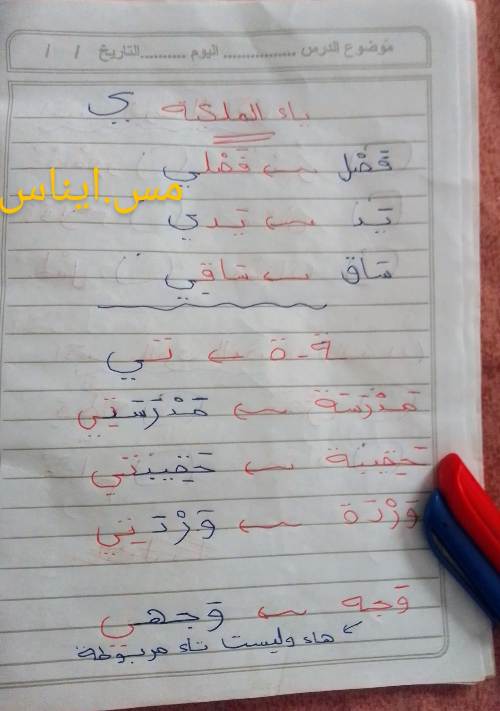 موضوع الدرس ................ اليوم .......... التاريخ / /
ياء الملكية ي
فَصْل ← فَصْلي
مس.ايناس
يَد ← يَدي
سَاق ← سَاقي
ـة ـ ة ← تي
مَدْرَسَة ← مَدْرَسَتي
حَقيبَة ← حَقيبَتي
وَرْدَة ← وَرْدَتي
وَجه ← وَجهي
هاء وليست تاء مربوطة